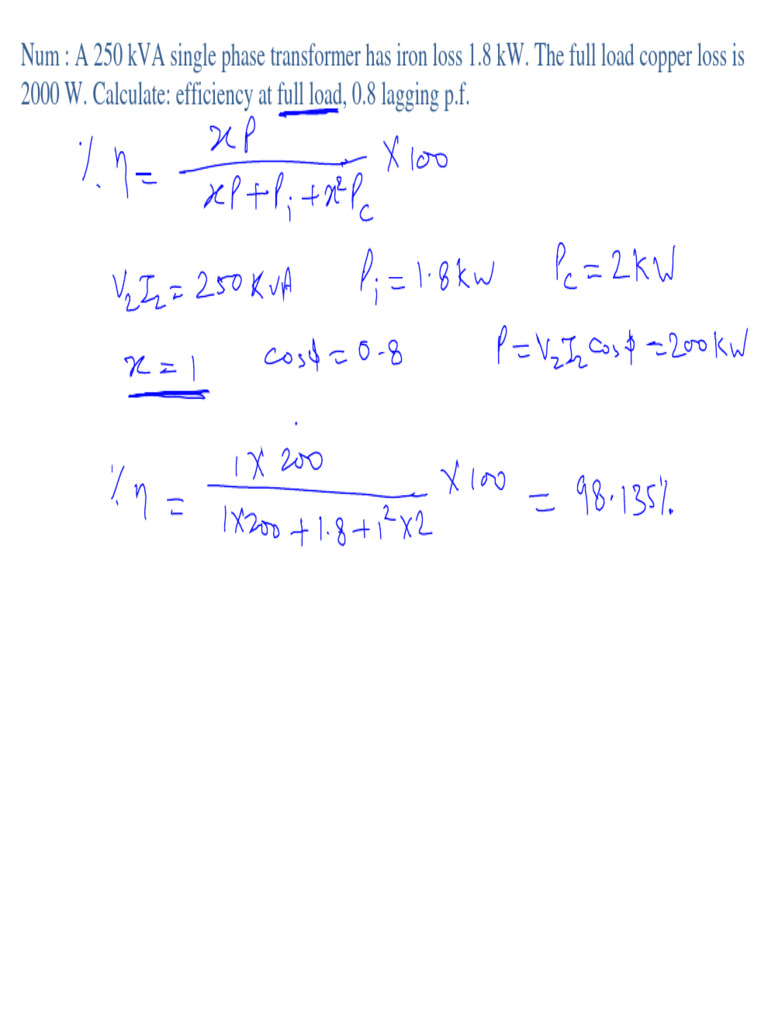 Num : A 250 kVA single phase transformer has iron loss 1.8 kW. The full load copper loss is
2000 W. Calculate: efficiency at full load, 0.8 lagging p.f.
% η = xP / (xP + Pᵢ + x²P_c) × 100
V₂I₂ = 250 KVA Pᵢ = 1.8 kW P_c = 2 KW
x = 1 cosϕ = 0.8 P = V₂I₂ cosϕ = 200 KW
% η = 1 × 200 / (1×200 + 1.8 + 1² × 2) × 100 = 98.135%.